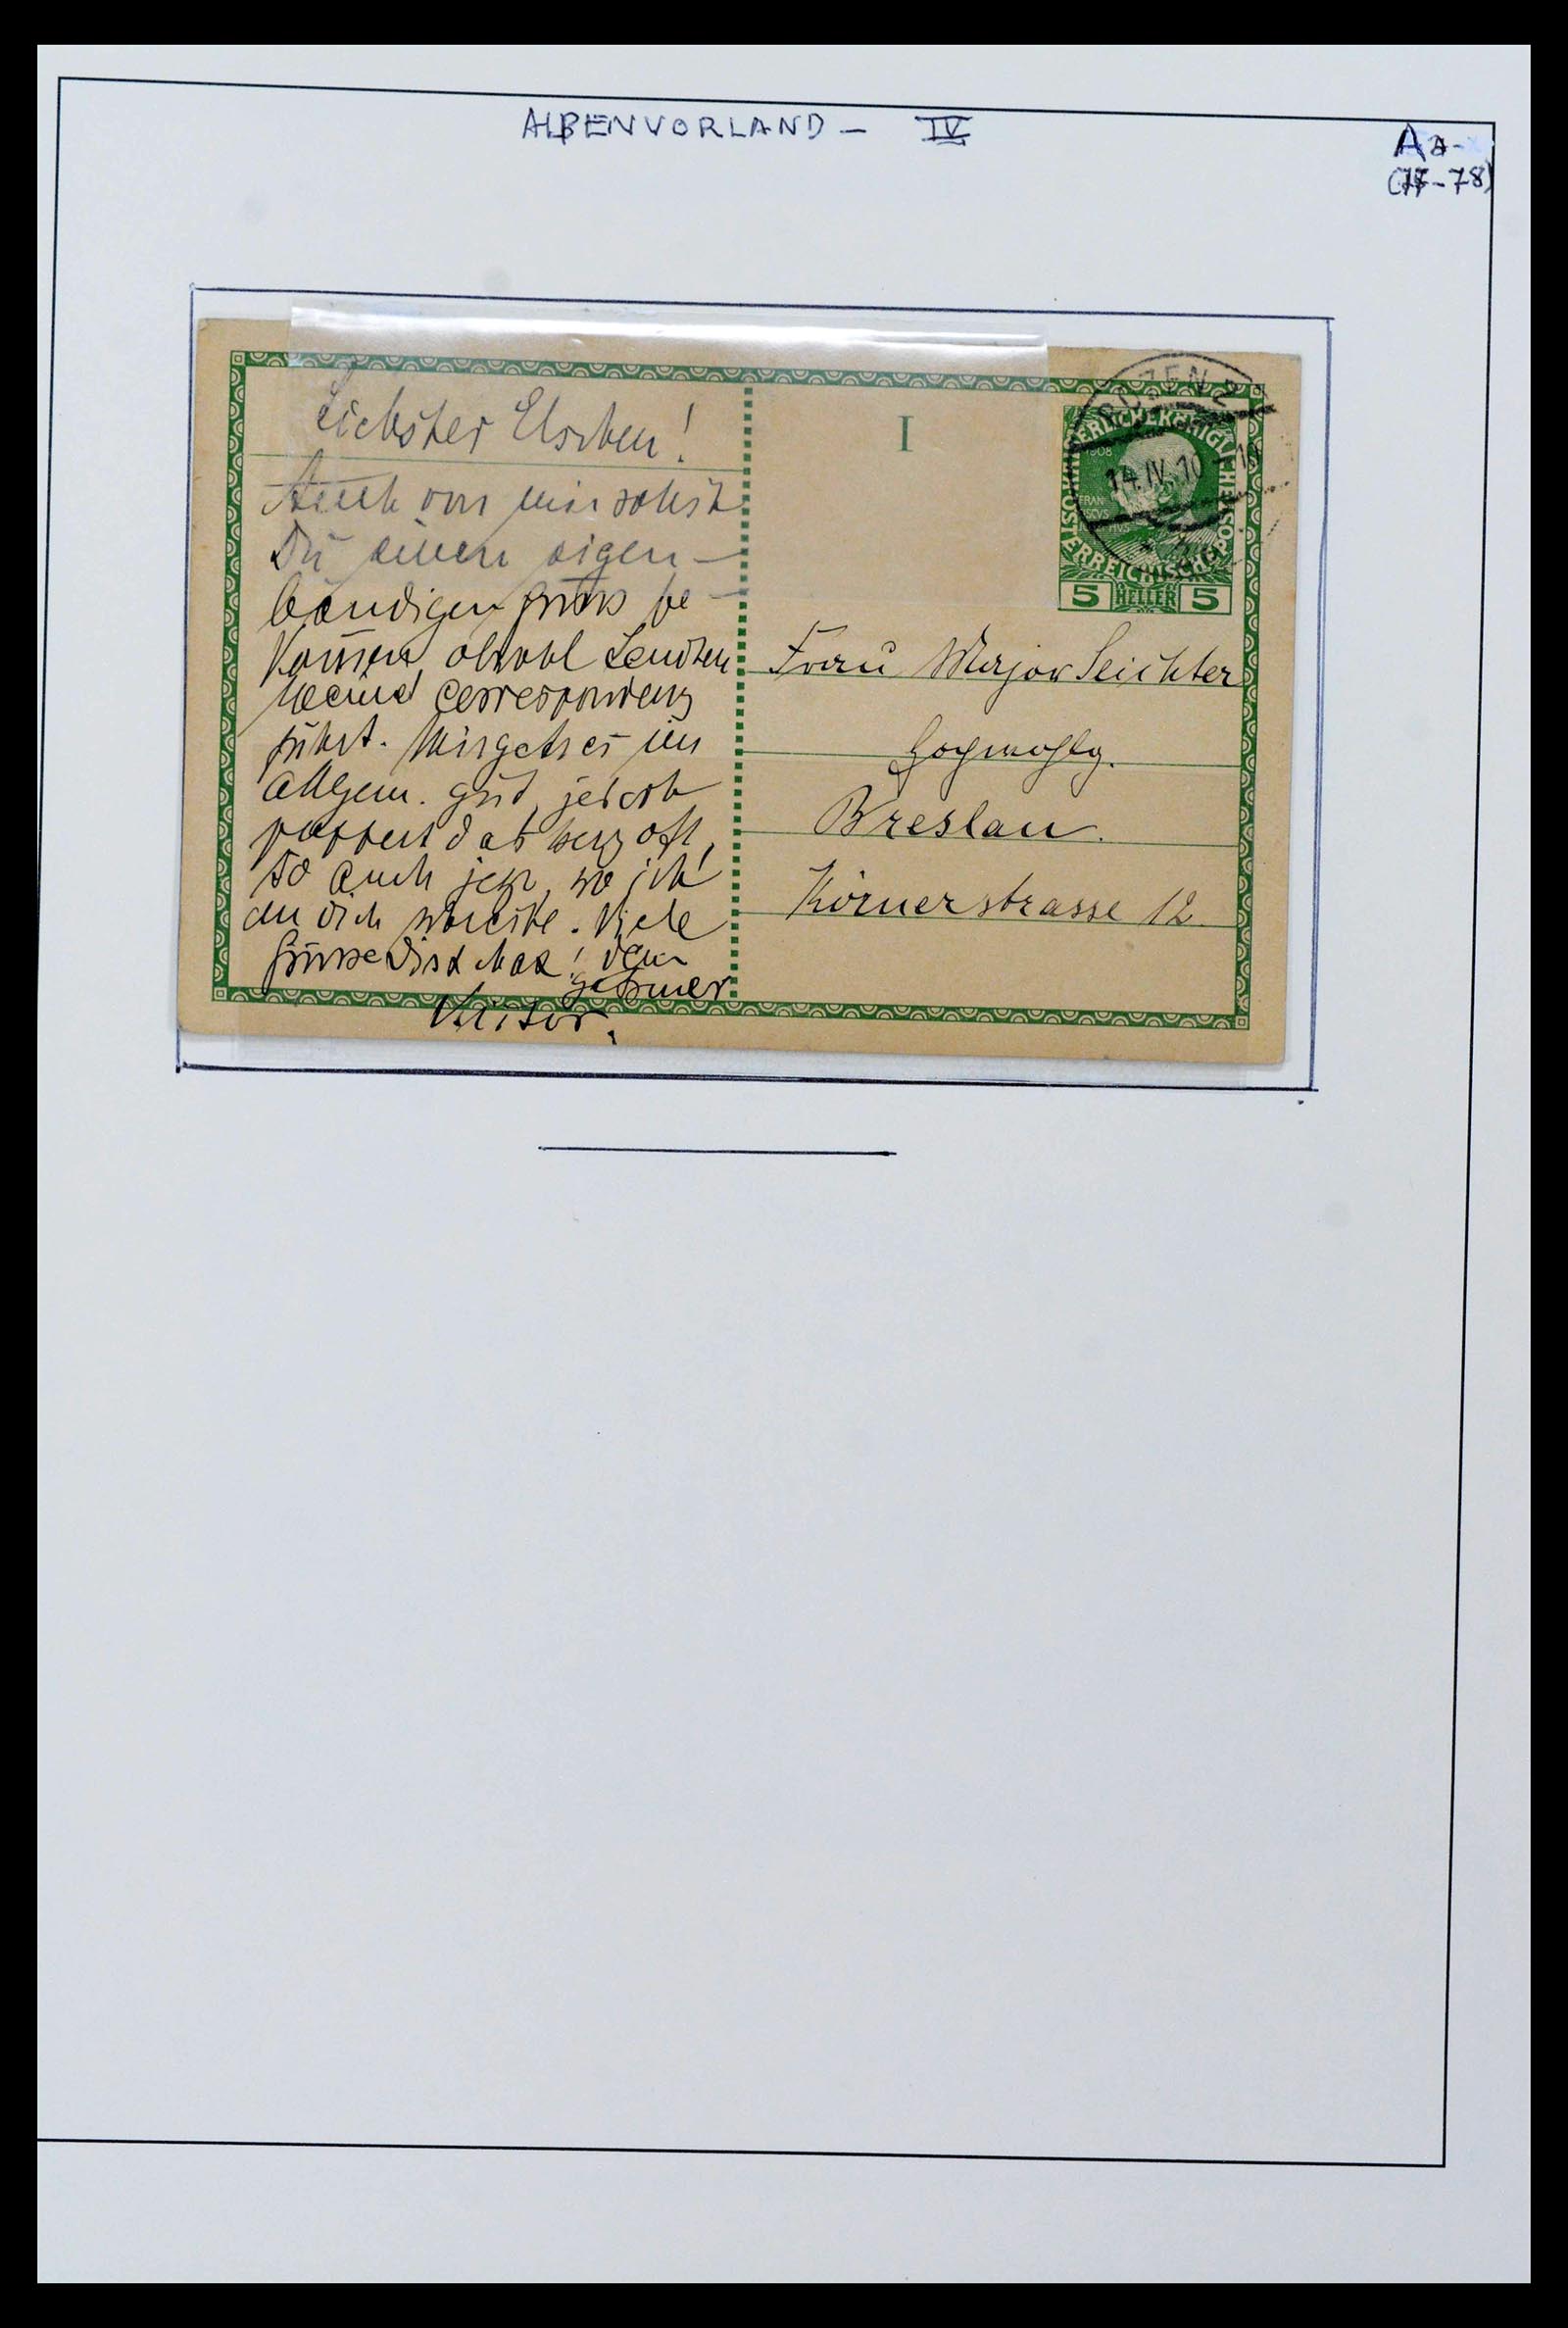 ALPENVORLAND - IV
Aa-
-78)
Liebster Elschen!
Auch von mir sollst
Du einen eigen-
händigen Gruss be-
kommen, obwohl
Correspondenz
führt. Mir geht es im
Allgem. gut, jedoch
puppert das Herz oft,
so auch jetzt, wo ich
an dich schreibe. Viele
Grüsse Dir & Max! Dein
I
BOZEN 2
14.IV.10
KAISERLICHE KÖNIGLICHE ÖSTERREICHISCHE POST
1908
5 HELLER 5
Frau Major Leichter
Hochwohlg.
Breslau.
Körnerstrasse 12.